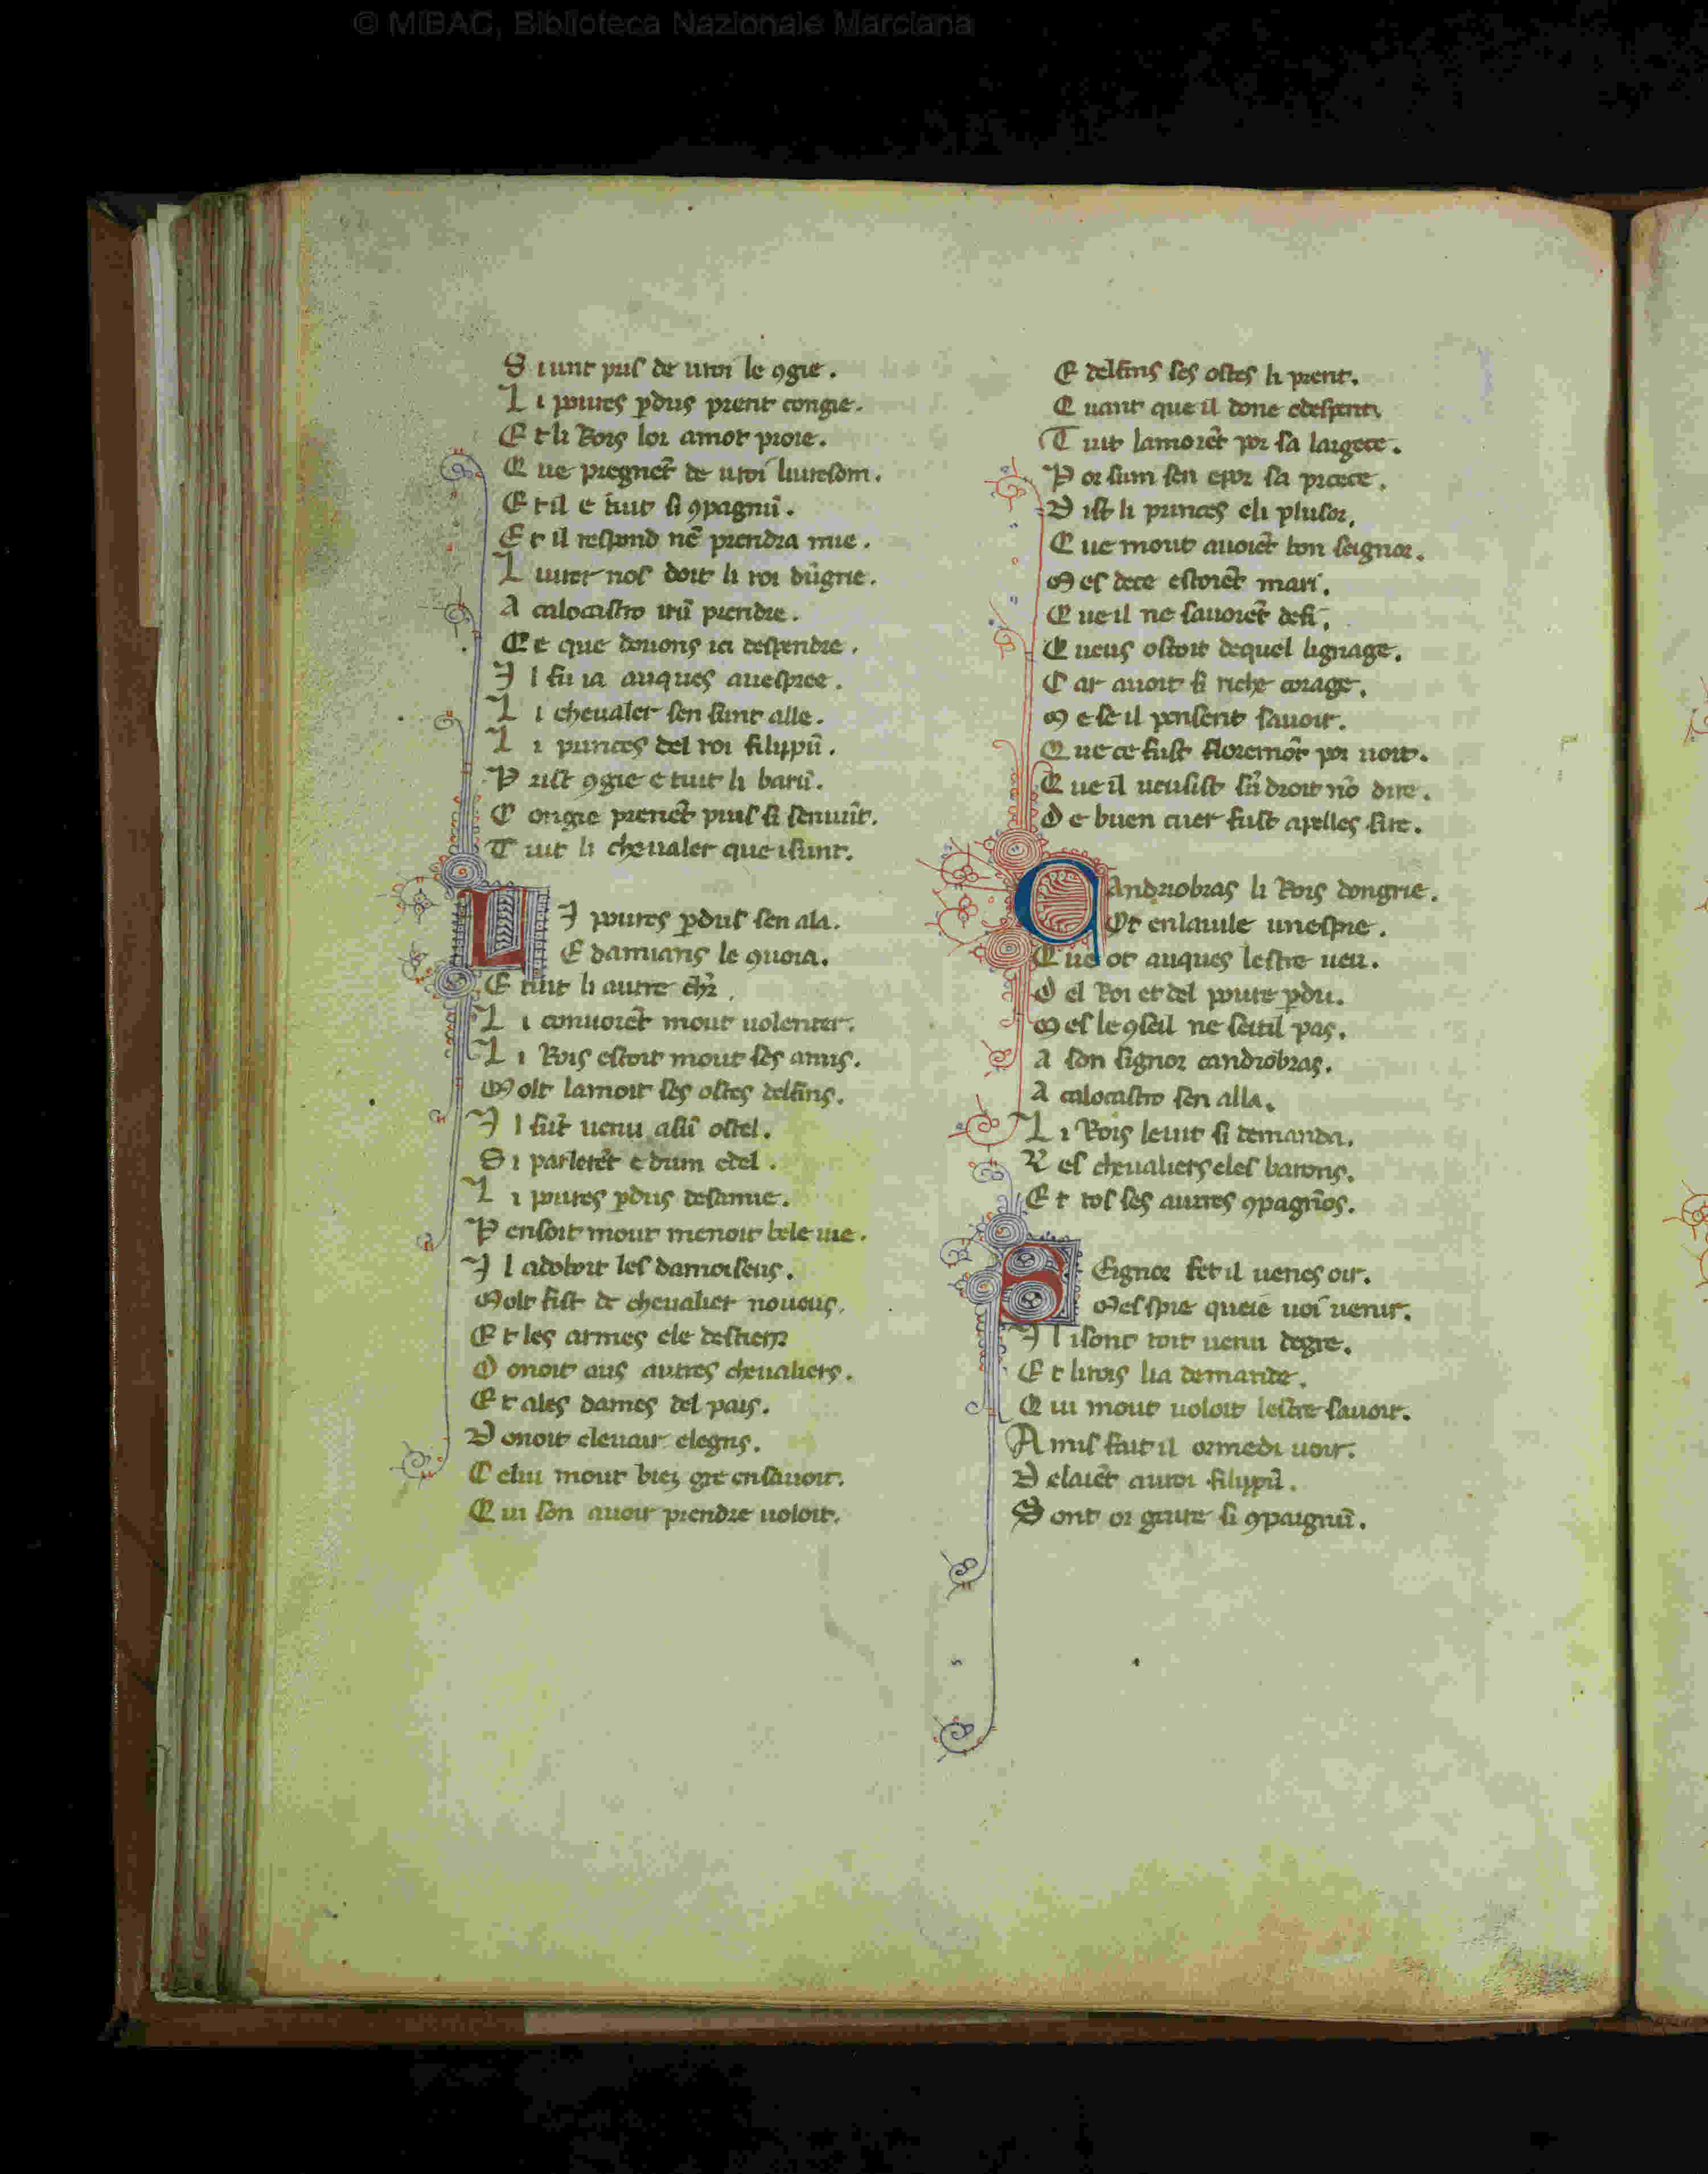 © MiBAC, Biblioteca Nazionale Marciana
S iunt pris de uroi le ꝯgie.
L i poures ꝑdus prent congie.
E t li Rois lor amor proie.
Q ue pregnēt de uroi liuresom.
E t il e tuit si ꝯpagnū.
E t il respond nē prendra mie.
L iurer nos doit li roi dūgrie.
A calocastro irū prendre.
E t que douons ici despendre.
I l fu ia auques auespree.
L i cheualer sen sunt alle.
L i princes del roi filippū.
P rist ꝯgie e tuit li barū.
C ongie prenēt puis si senuūt.
T uit li cheualer que i sunt.
L I poures ꝑdus sen ala.
E damians le ꝯuoia.
E tuit li autre chr̄
L i conuoiēt mout uolenter.
L i Rois estoit mout ses amis.
M olt lamoit ses ostes delfins.
I l fūt uenu a sū ostel.
S i parlerēt e dum e del.
L i poures ꝑdus de samie.
P ensoit mout menoit bele uie.
I l adoboit les damoiseus.
M olt fist de cheualier noueus.
E t les armes e le destrers
D onoit aus autres cheualiers.
E t a les dames del pais.
D onoit e le uair e le gris.
C elui mout biē gre en sauoit.
Q ui son auoir prendre uoloit.
E delfins ses ostes li prent.
Q uant que il done e despent.
T uit lamoiēt por sa largece.
P or sum sen e por sa proece.
D ist li princes e li plusor.
Q ue mout auoiēt bon seignor.
M es de ce estoiēt mari.
Q ue il ne sauoiēt de fi.
Q ueus estoit de quel lignage.
C ar auoit si riche corage.
M e se il poisent sauoir.
Q ue ce fust floremōt por uoir.
Q ue il uensist sū droit nō dire.
D e buen cuer fust apelles sire.
C Andriobras li Rois dongrie.
Ot en la uile une spie.
Q ue ot auques lestre ueu.
D el Roi et del poure ꝑdu.
M es le ꝯseil ne seit il pas.
A son signor candiobras.
A calocastro sen alla.
L i Rois le uit si demanda.
R es cheualiers e les barons.
E t tos ses autres ꝯpagnōs.
S Eignor fet il uenes oir.
Mes spie que ie uoi uenir.
I l i sont toit uenu de gre.
E t li rois li a demande.
Q ui mout uoloit lestre sauoir.
A mis fait il or me di uoir.
D e la iēt au roi filippū.
S ont or grāte si ꝯpaignū.